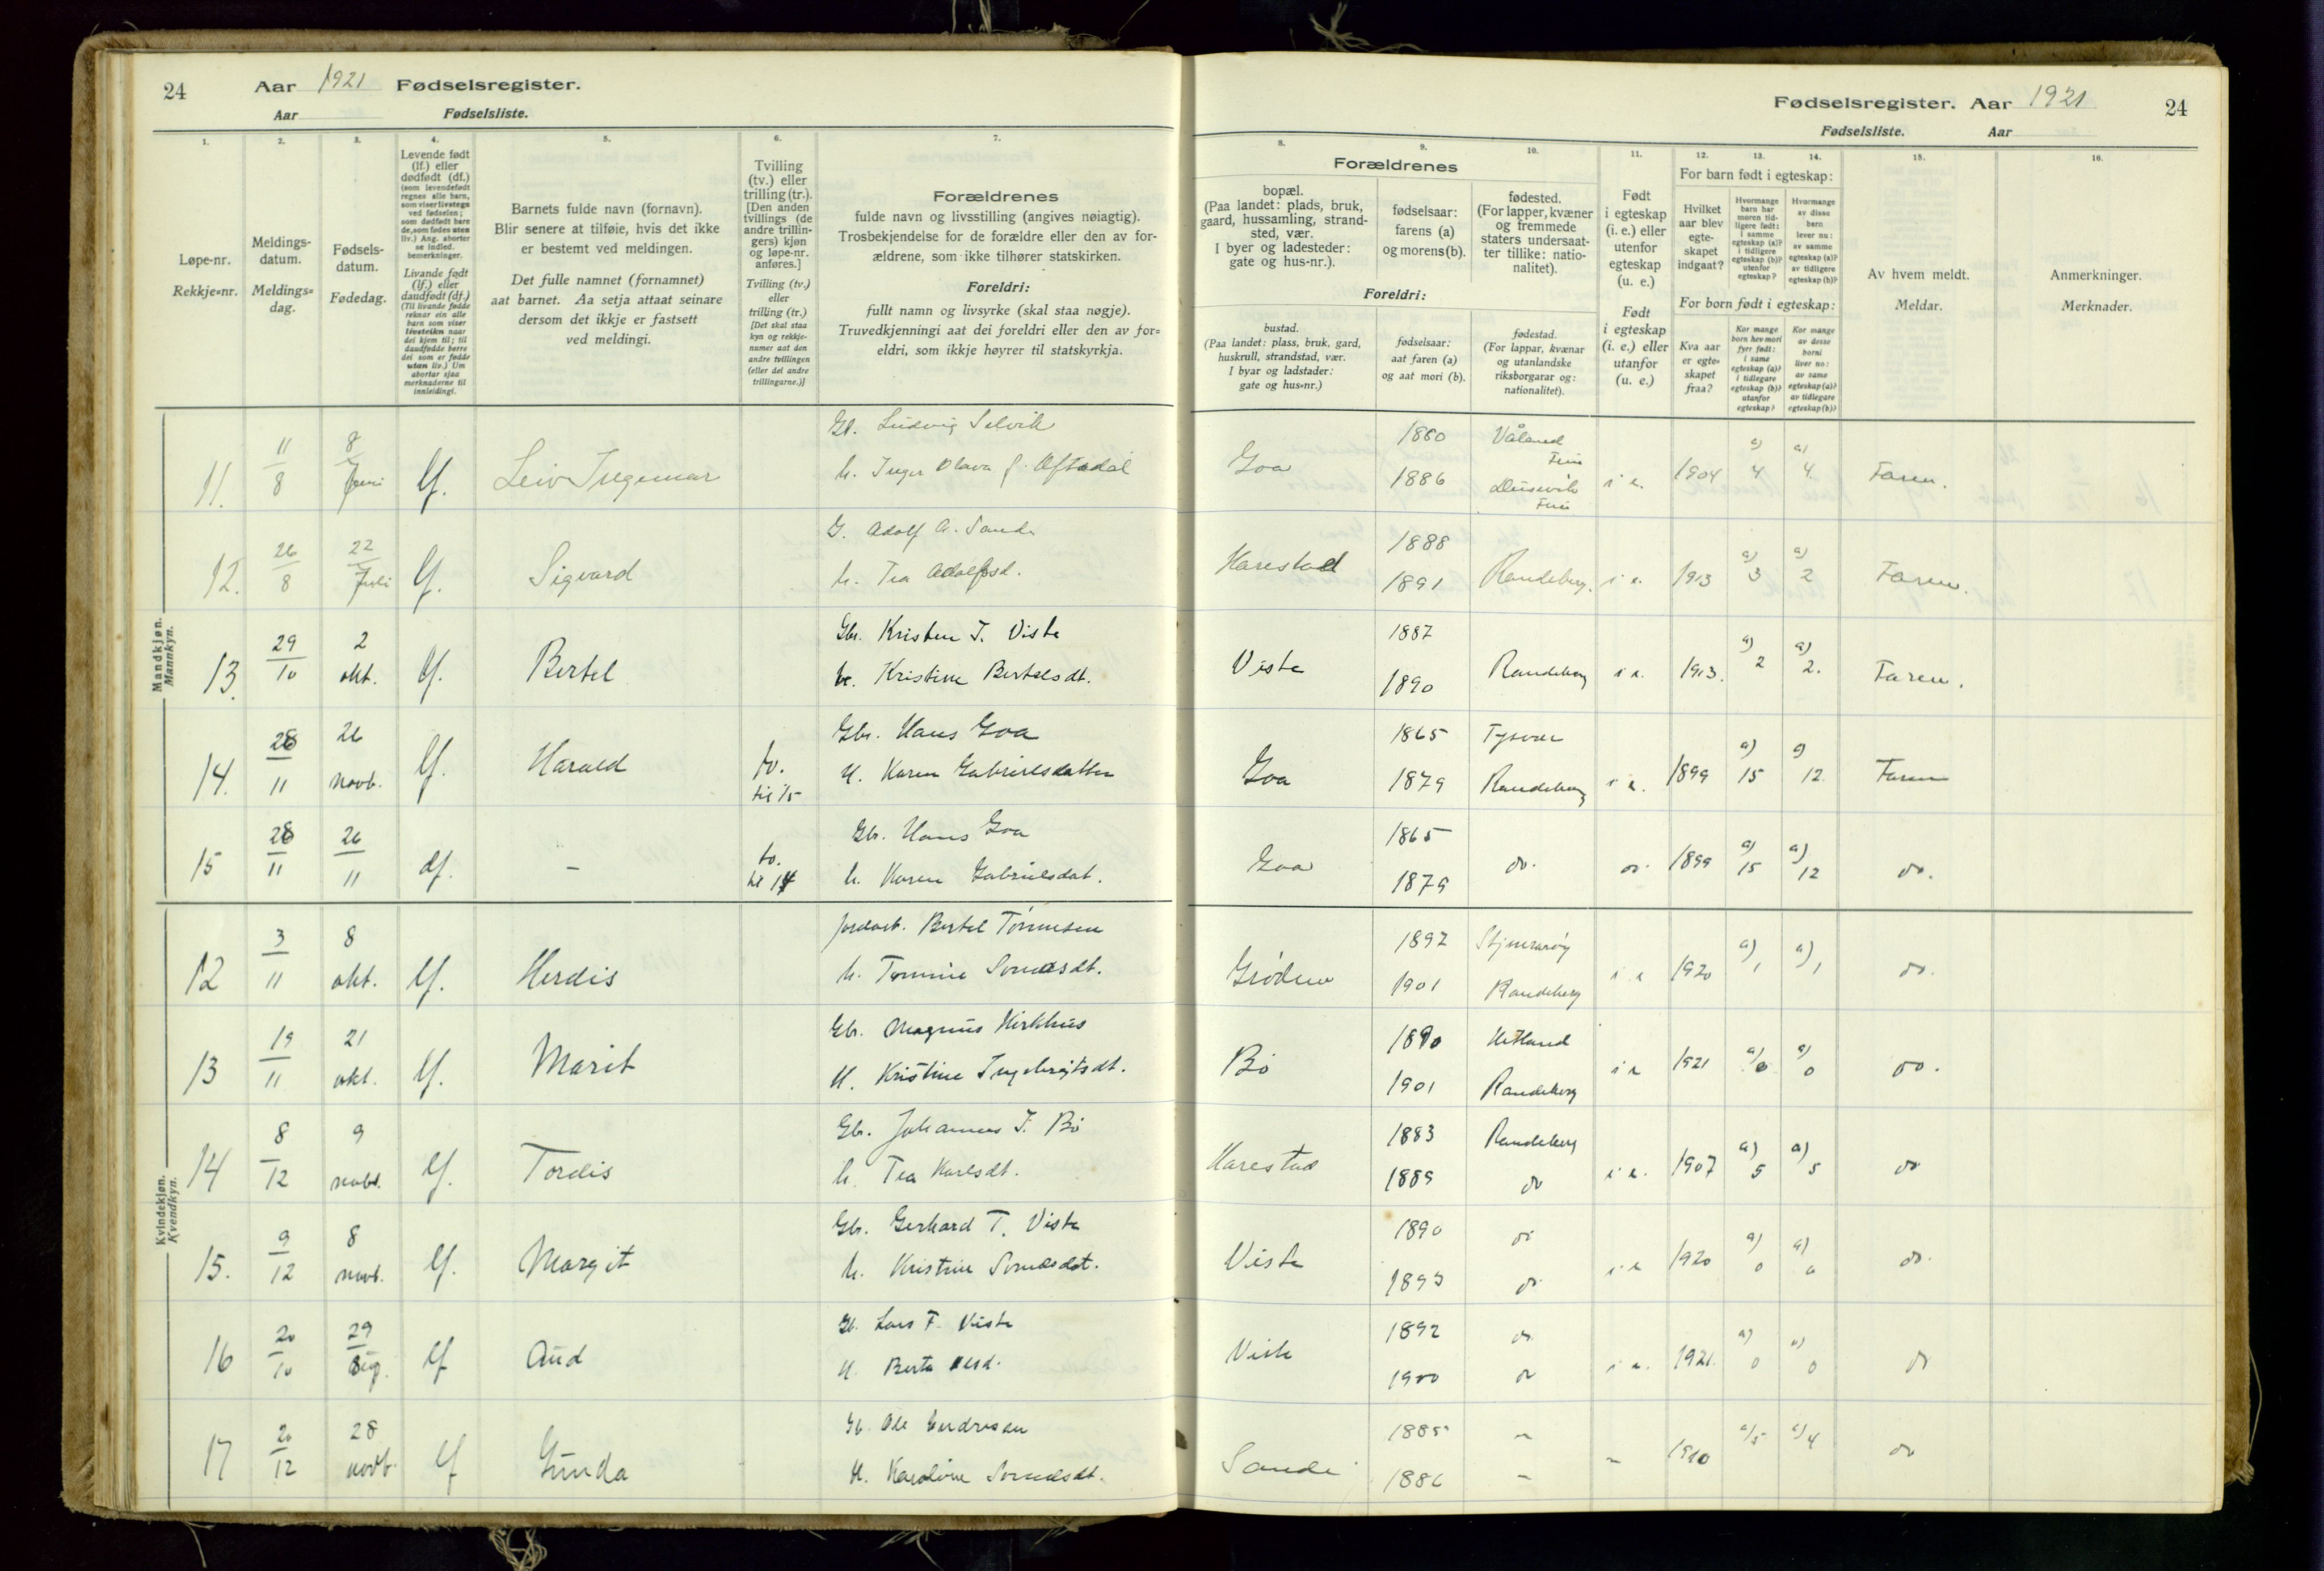 24
Aar 1921 Fødselsregister.
Aar
Fødselsliste.
Fødselsregister. Aar 1921
24
Fødselsliste. Aar
1.
2.
3.
4.
5.
6.
7.
8.
9.
10.
11.
12.
13.
14.
15.
16.
Løpe-nr.
Rekkje=nr.
Meldings-
datum.
Meldings=
dag.
Fødsels-
datum.
Fødedag.
Levende født
(lf.) eller
dødfødt (df.)
(som levendefødt
regnes alle barn,
som viser livstegn
ved fødselen;
som dødfødt bare
de, som fødes uten
liv.) Ang. aborter
se indled.
bemerkninger.
Livande født
(lf.) eller
daudfødt (df.)
(Til livande fødde
reknar ein alle
barn som viser
livsteikn naar
dei kjem til; til
daudfødde berre
dei som er fødde
utan liv.) Um
abortar sjaa
merknaderne til
innleidingi.
Barnets fulde navn (fornavn).
Blir senere at tilføie, hvis det ikke
er bestemt ved meldingen.
Det fulle namnet (fornamnet)
aat barnet. Aa setja attaat seinare
dersom det ikkje er fastsett
ved meldingi.
Tvilling
(tv.) eller
trilling (tr.).
[Den anden
tvillings (de
andre trillin-
gers) kjøn
og løpe-nr.
anføres.]
Tvilling (tv.)
eller
trilling (tr.)
[Det skal staa
kyn og rekkje-
numer aat den
andre tvillingen
(eller dei andre
trillingarne.)]
Forældrenes
fulde navn og livsstilling (angives nøiagtig).
Trosbekjendelse for de forældre eller den av for-
ældrene, som ikke tilhører statskirken.
Foreldri:
fullt namn og livsyrke (skal staa nøgje).
Truvedkjenningi aat dei foreldri eller den av for=
eldri, som ikkje høyrer til statskyrkja.
Forældrenes
bopæl.
(Paa landet: plads, bruk,
gaard, hussamling, strand-
sted, vær.
I byer og ladesteder:
gate og hus-nr.).
fødselsaar:
farens (a)
og morens (b).
fødested.
(For lapper, kvæner
og fremmede
staters undersaat-
ter tillike: natio-
nalitet).
Foreldri:
bustad.
(Paa landet: plass, bruk, gard,
huskrull, strandstad, vær.
I byar og ladstader:
gate og hus=nr.)
fødselsaar:
aat faren (a)
og aat mori (b).
fødestad.
(For lappar, kvænar
og utanlandske
riksborgarar og:
nationalitet).
Født
i egteskap
(i. e.) eller
utenfor
egteskap
(u. e.)
Født
i egteskap
(i. e.) eller
utanfor
(u. e.)
For barn født i egteskap:
Hvilket
aar blev
egte-
skapet
indgaat?
Hvormange
barn har
moren tid-
ligere født:
i samme
egteskap (a)?
i tidligere
egteskap (b)?
utenfor
egteskap?
Hvormange
av disse
barn
lever nu:
av samme
egteskap (a)?
av tidligere
egteskap (b)?
For born født i egteskap:
Kva aar
er egte=
skapet
fraa?
Kor mange
born hev mori
fyrr født:
i same
egteskap (a)?
i tidlegare
egteskap (b)?
utanfor
egteskap?
Kor mange
av desse
borni
liver no:
av same
egteskap (a)?
av tidlegare
egteskap (b)?
Av hvem meldt.
Meldar.
Anmerkninger.
Merknader.
Mandkjøn.
Mannkyn.
11. 11/8 8/Juni lf. Leiv Ingemar Gb. Ludvig Selvik
h. Inger Olava f. Aftedal Goa 1880 1886 i e. 1904 a) 4 a) 4. Faren.
12. 26/8 22/Juli lf. Sigvard G. Adolf A. Sande
h. Tea Adolfsd. Harestad 1888 1891 Randeberg. i e. 1913 a) 3 a) 2 Faren.
13. 29/10 2 okt. lf. Bertel Gbr. Kristen T. Viste
h. Kristine Bertelsdt. Viste 1887 1890 Randeberg i e. 1913. a) 2 a) 2. Faren.
14. 28/11 26 novb. lf. Harald tv. til 15 Gbr. Hans Goa
H. Karen Gabrielsdatter Goa 1865 Tysvær 1879 Randeberg i e. 1899 a) 15 a) 12. Faren
15 28/11 26/11 df. - tv. til 14 Gbr. Hans Goa
h. Karen Gabrielsdat. Goa 1865 1879 do. do. 1899 a) 15 a) 12 do.
Kvindekjøn.
Kvendkyn.
12 3/11 8 okt. lf. Herdis Jordarb. Bertel Tønnesen
h. Tomine Somesdt. Grødem 1897 1901 Randeberg i e 1920 a) 1 a) 1 do.
13 19/11 21 okt. lf. Marit Gbr. Magnus Kirkhus
H. Kristine Ingebrigtsdt. Bø 1890 Hetland 1901 Randeberg i e 1921 a) 0 a) 0 do.
14 8/12 9 novbr. lf. Tordis Gb. Johannes T. Bø
h. Tea Karlsdt. Harestad 1883 Randeberg 1889 do i e. 1907 a) 5 a) 5 do
15. 9/12 8 novb. lf. Margit Gbr. Gerhard T. Viste
h. Kristine Somesdat. Viste 1890 do 1893 do i e 1920 a) 0 a) 0 do.
16 20/10 29 Aug. lf Aud Gb. Lars F. Viste
H. Berta Olsd. Viste 1892 do. 1900 do i e. 1921. a) 0 a) 0 do
17 20/12 28 novb. lf Gunda Gb. Ole Endresen
H. Karoline Somesdt. Sande 1885 - 1886 - - 1910 a) 5 a) 4 do